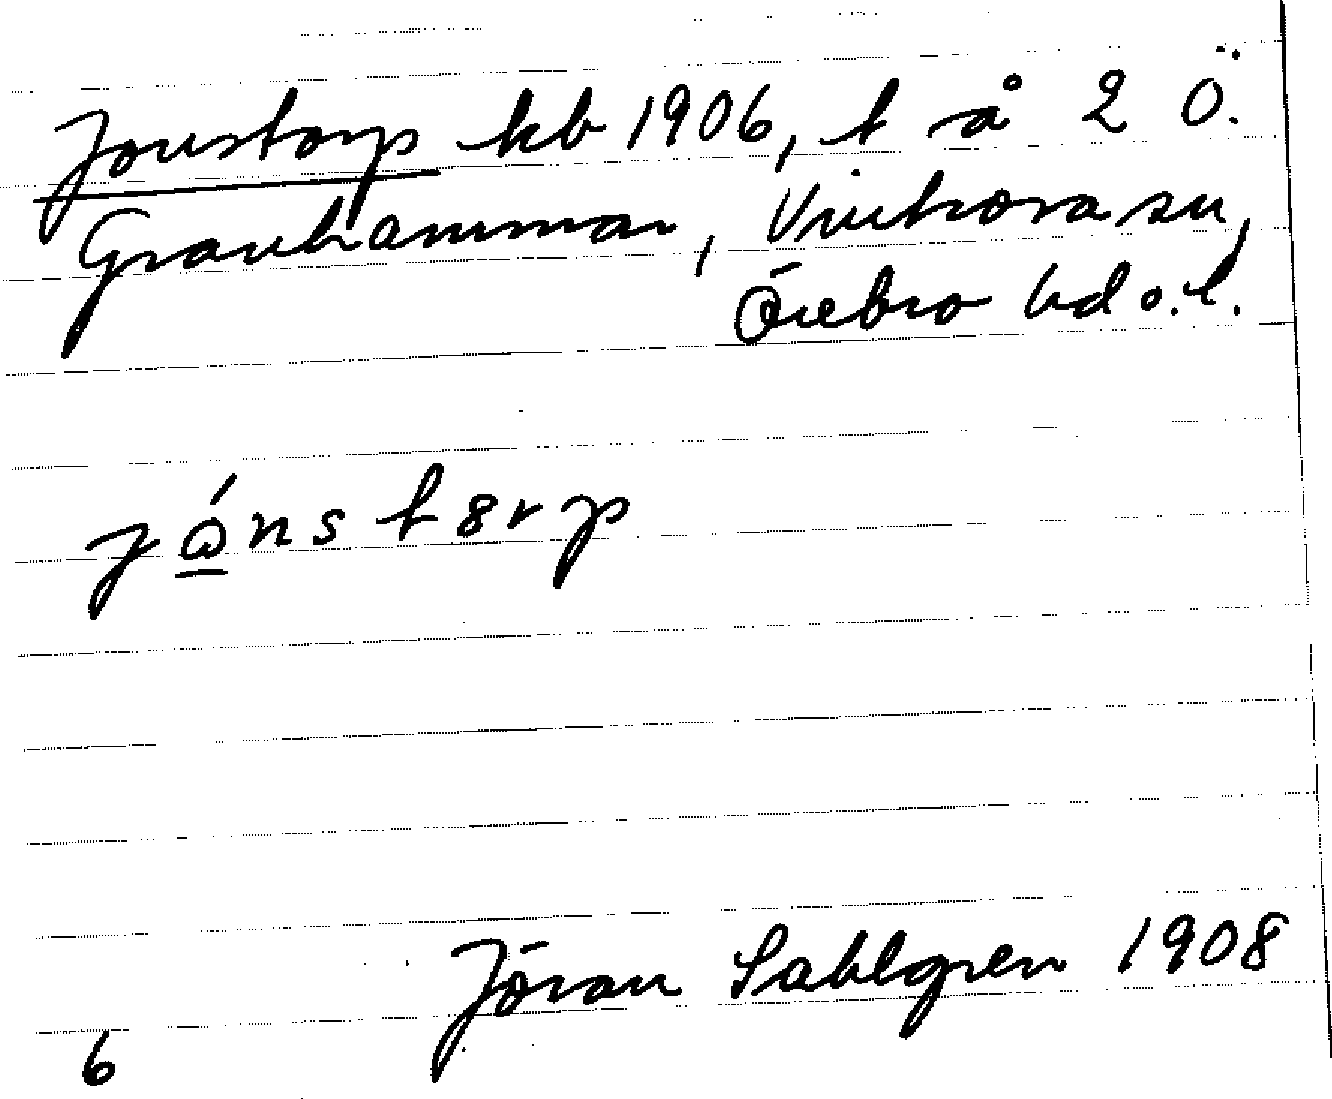 Jonstorp kb 1906, t så 2 Ö.
Granhammar, Vintrosa sn,
Örebro hd o. l.
jónstorp
Jöran Sahlgren 1908
6